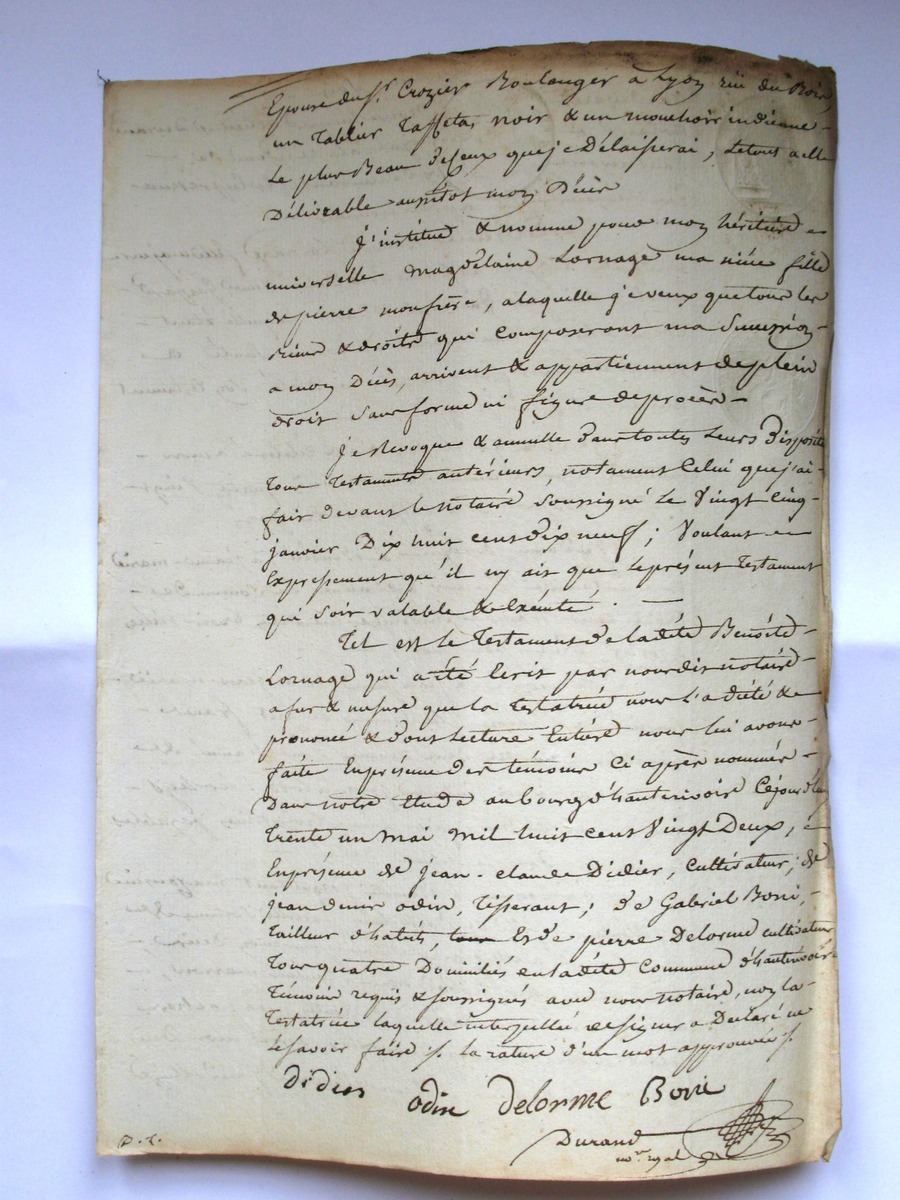 Epouse du Sr. Crozier Boulanger a Lyon rüe du Bois,
un Tablier Taffetas noir & un mouchoir indienne -
Le plus Beau de Ceux que je Délaisserai, Letout a elle
Délivrable aussitot mon Décès
J'institue & nomme pour mon héritière
universelle Magdelaine Lornage ma niéce fille
de pierre mon frère, a laquelle je veux que tous les
Biens & droits qui composeront ma Succession -
a mon Décès, arrivent & appartiennent de plein
droit sans forme ni figure de procès -
Je Revoque & annulle dans toutes Leurs disposit.
Tous Testaments antérieurs, notament Celui que j'ai -
fait devant le notaire Soussigné Le Vingt Cinq -
janvier Dix huit cent dix neuf ; Voulant
Expressement qu'il ny ait que le présent Testament
qui soit valable & Exécuté . —
Tel est le Testament de la dite Benoite -
Lornage qui a été Ecrit par nousdit notaire -
a fur & mesure que la Testatrice nous l'a dicté &
prononcé & dont Lecture Entière nous lui avons -
faite En présence des témoins Ci après nommés -
Dans notre Etude au bourg d'hauterivoire Cejourd'hui
trente un mai mil huit cent Vingt Deux,
En présence de jean-claude Didier, Cultivateur, de
jean denis odin, Tisserant ; de Gabriel Boni, -
Tailleur d'habits, Et de pierre Delorme cultivateur
Tous quatre Domiciliés en ladite Commune d'hauterivoire
Témoins requis & soussignés avec nous notaire, non la -
Testatrice laquelle interpellée de signer a Déclaré ne
Le savoir faire ./. la rature d'un mot approuvée ./.
didier odin delorme Boni
Durand
nore. royal
D. L.